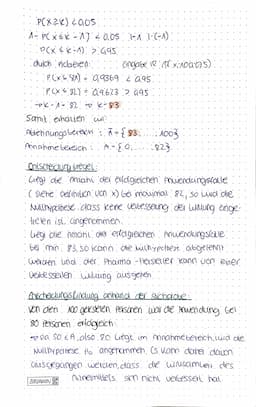 P(X≥k) < 0,05
1 - P(X ≤ k - 1) < 0,05 |-1 |·(-1)
P(X ≤ k - 1) > 0,95
durch probieren:
P(X ≤ 81) = 0,9369 < 0,95
P(X ≤ 82) = 0,9623 > 0,95
→ k - 1 = 82 → k = 83
Somit erhalten wir:
Ablehnungsbereich: Ā = {83; ...100}
Annahmebereich: A = {0; ...82}
Entscheidungsregel:
Liegt die Anzahl der erfolgreichen Anwendungsfälle
(siehe Definition von X) bei maximal 82, so wird die
Nullhypothese, dass keine Verbesserung der Wirkung einge-
treten ist, angenommen.
Liegt die Anzahl der erfolgreichen Anwendungsfälle
bei min 83, so kann die Nullhypothese abgelehnt
werden und der Pharma-Hersteller kann von einer
verbesserten Wirkung ausgehen
Entscheidungsfindung anhand der Stichprobe:
Von den 100 getesteten Personen war die Anwendung bei
80 Personen erfolgreich
→ da 80 ∈ A, also 80 liegt im Annahmebereich, wird die
Nullhypothese H₀ angenommen. Es kann daher davon
ausgegangen werden, dass die Wirksamkeit des
Arzneimittels sich nicht verbessert hat.